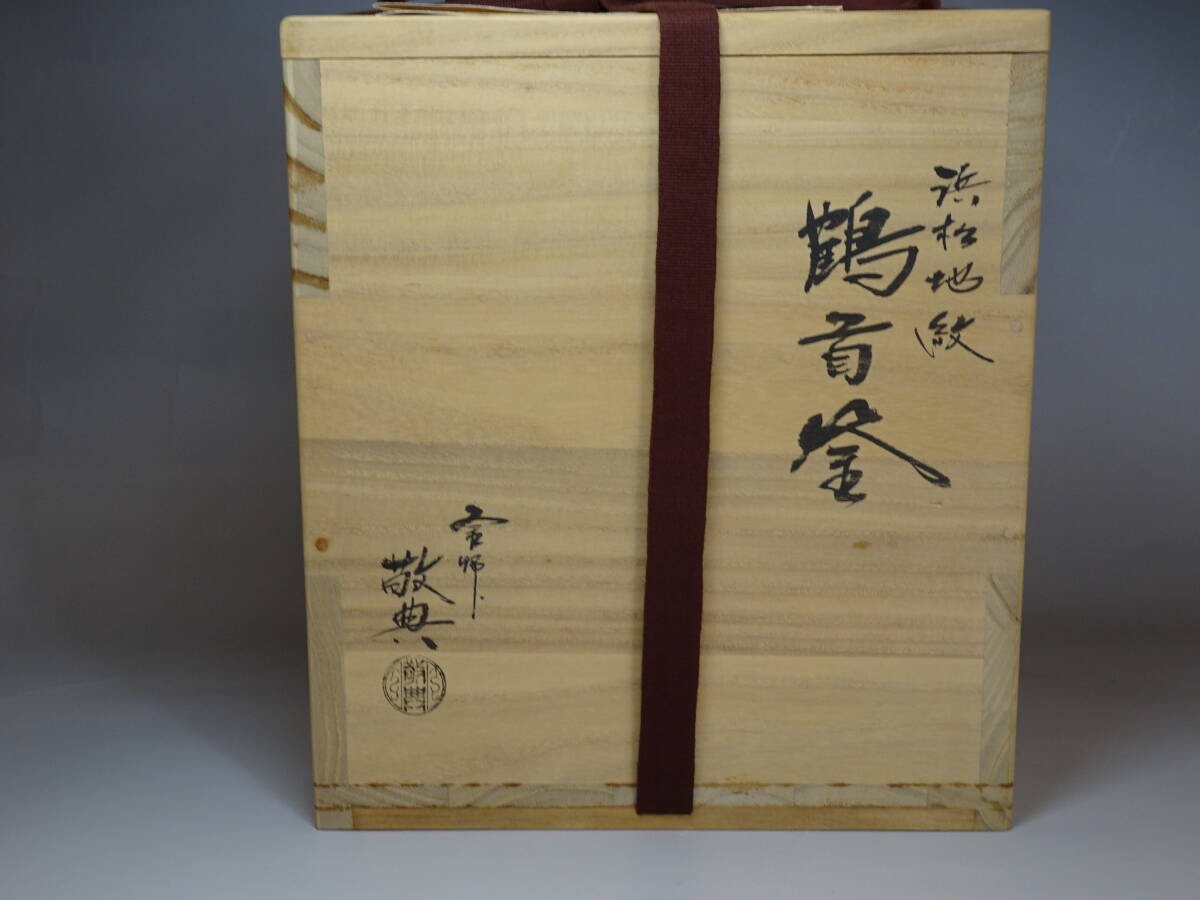 浜松地紋
鶴首釜
釜師
敬典
敬典